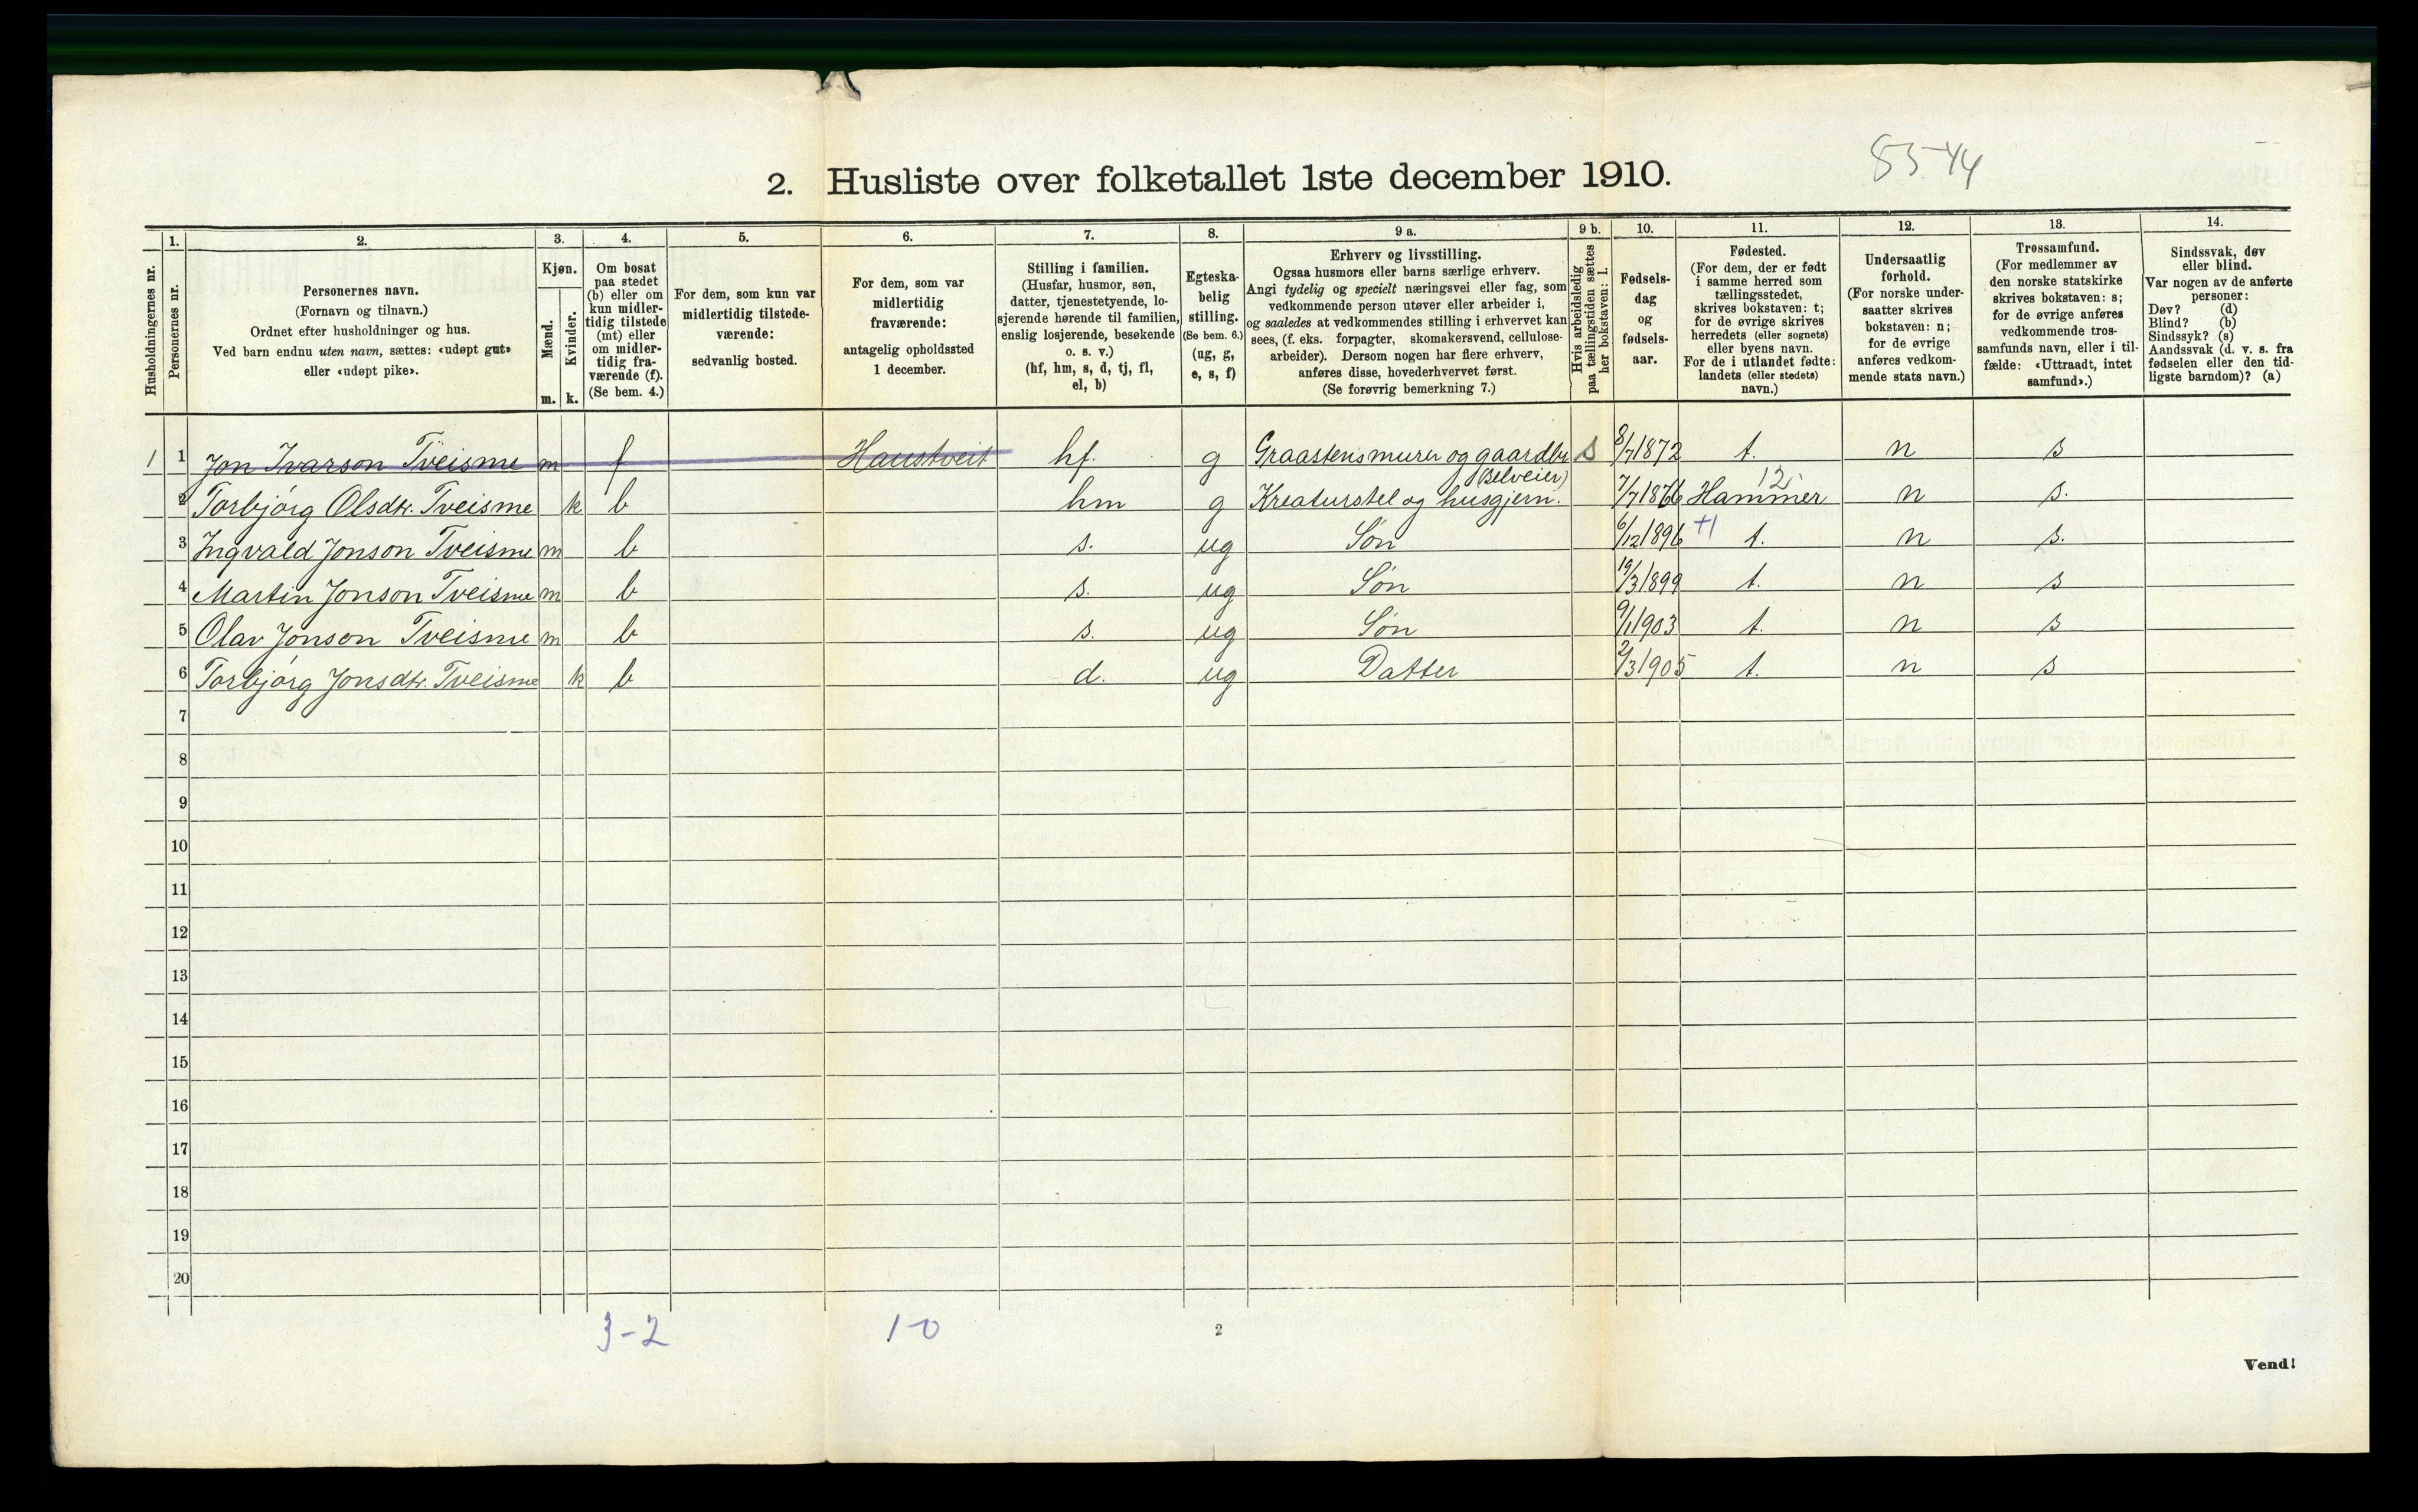 85 44
2. Husliste over folketallet 1ste december 1910.
Husholdningernes nr.
1.
Personernes nr.
2.
Personernes navn.
(Fornavn og tilnavn.)
Ordnet efter husholdninger og hus.
Ved barn endnu uten navn, sættes: «udøpt gut»
eller «udøpt pike».
3.
Kjøn.
Mænd.
Kvinder.
m. k.
4.
Om bosat
paa stedet
(b) eller om
kun midler-
tidig tilstede
(mt) eller
om midler-
tidig fra-
værende (f).
(Se bem. 4.)
5.
For dem, som kun var
midlertidig tilstede-
værende:
sedvanlig bosted.
6.
For dem, som var
midlertidig
fraværende:
antagelig opholdssted
1 december.
7.
Stilling i familien.
(Husfar, husmor, søn,
datter, tjenestetyende, lo-
sjerende hørende til familien,
enslig losjerende, besøkende
o. s. v.)
(hf, hm, s, d, tj, fl,
el, b)
8.
Egteska-
belig
stilling.
(Se bem. 6.)
(ug, g,
e, s, f)
9 a.
Erhverv og livsstilling.
Ogsaa husmors eller barns særlige erhverv.
Angi tydelig og specielt næringsvei eller fag, som
vedkommende person utøver eller arbeider i,
og saaledes at vedkommendes stilling i erhvervet kan
sees, (f. eks. forpagter, skomakersvend, cellulose-
arbeider). Dersom nogen har flere erhverv,
anføres disse, hovederhvervet først.
(Se forøvrig bemerkning 7.)
9 b.
Hvis arbeidsledig
paa tællingstiden sættes
her bokstaven: l.
10.
Fødsels-
dag
og
fødsels-
aar.
11.
Fødested.
(For dem, der er født
i samme herred som
tællingsstedet,
skrives bokstaven: t;
for de øvrige skrives
herredets (eller sognets)
eller byens navn.
For de i utlandet fødte:
landets (eller stedets)
navn.)
12.
Undersaatlig
forhold.
(For norske under-
saatter skrives
bokstaven: n;
for de øvrige
anføres vedkom-
mende stats navn.)
13.
Trossamfund.
(For medlemmer av
den norske statskirke
skrives bokstaven: s;
for de øvrige anføres
vedkommende tros-
samfunds navn, eller i til-
fælde: «Uttraadt, intet
samfund».)
14.
Sindssvak, døv
eller blind.
Var nogen av de anførte
personer:
Døv? (d)
Blind? (b)
Sindssyk? (s)
Aandssvak (d. v. s. fra
fødselen eller den tid-
ligste barndom)? (a)
1 1 Jon Ivarson Tveisme m f Haustveit hf. g Graastensmurer og gaardbr s 8/7 1872 t. n s
(Selveier) 12
2 Torbjörg Olsdtr. Tveisme k b hm g Kreaturstel og husgjern. 7/7 1866 Hammer n s.
3 Ingvald Jonson Tveisme m b s. ug Søn 6/12 1896 +1 t. n s.
4 Martin Jonson Tveisme m b s. ug Søn 19/3 1899 t. n s
5 Olav Jonson Tveisme m b s. ug Søn 9/1 1903 t. n s
6 Torbjörg Jonsdtr. Tveisme k b d. ug Datter 2/3 1905 t. n s
7
8
9
10
11
12
13
14
15
16
17
18
19
20
3-2 1-0 2
Vend!